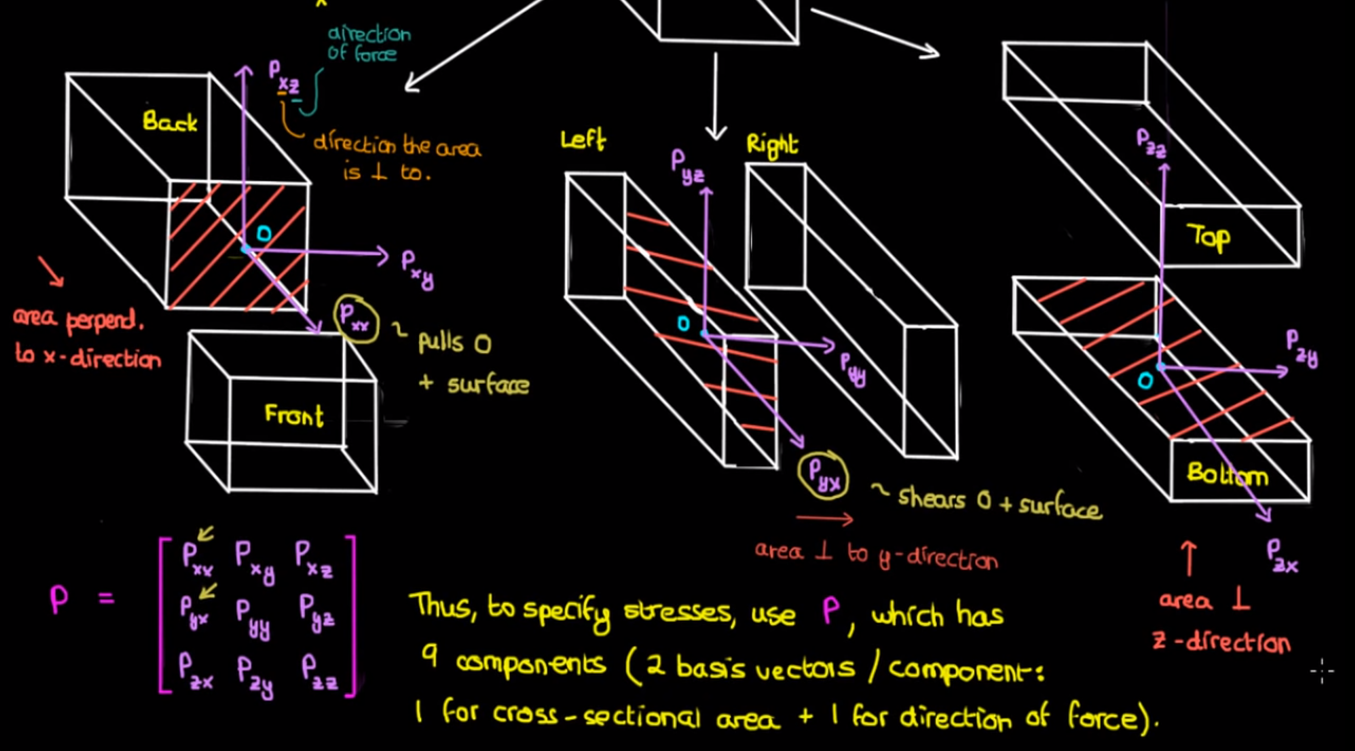 direction
of force
P_xz
direction the area
is ⊥ to.
Back
O
P_xy
P_xx ~ pulls O
+ surface
area perpend.
to x-direction
Front
Left
Right
P_yz
O
P_yy
P_yx ~ shears O + surface
area ⊥ to y-direction
Top
P_zz
P_zy
O
Bottom
P_zx
area ⊥
z-direction
P = [ P_xx P_xy P_xz
P_yx P_yy P_yz
P_zx P_zy P_zz ]
Thus, to specify stresses, use P, which has
9 components (2 basis vectors / component:
1 for cross-sectional area + 1 for direction of force).